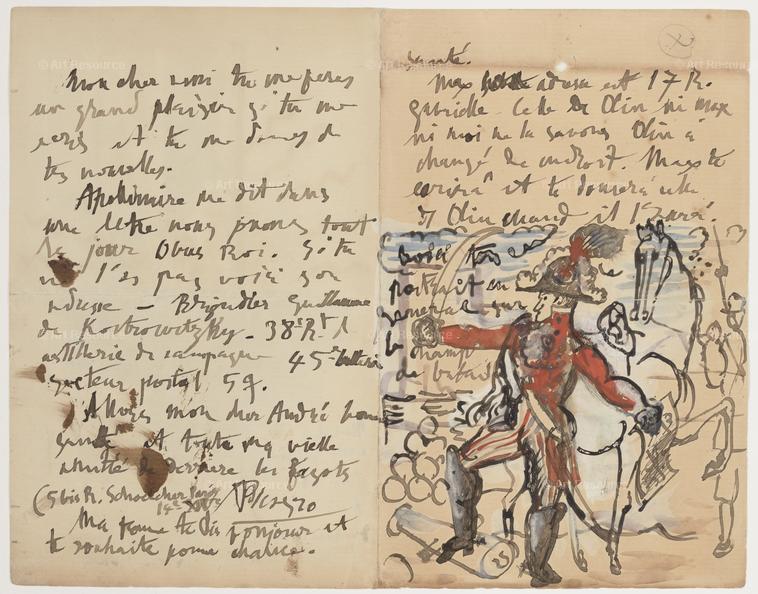 Mon cher ami tu me feras
un grand plaisir si tu me
ecris et tu me donnes de
tes nouvelles.
Apollinaire me dit dans
une lettre nous prenons tout
le jour Obus Roi. Si tu
ne l'as pas voici son
adresse — Brigadier Guillaume
de Kostrowitzky. 38e Rt d
artillerie de campagne 45e batterie
secteur postal 59.
Allons mon cher André bonne
santé et toute ma vieille
amitié de derriere les fagots
(5 bis R. Schoelcher Paris
14e Picasso
Ma femme te dis bonjour et
te souhaite bonne chance.
santé.
Max adresse est 17 R.
Gabrielle. Celle de Olin ni Max
ni moi ne la savons Olin a
changé de endroit. Max te
ecrira et te donnera celle
de Olin quand il l'aura.
voici ton
portrait en
general sur
le
champ
de bataille
Art Resource